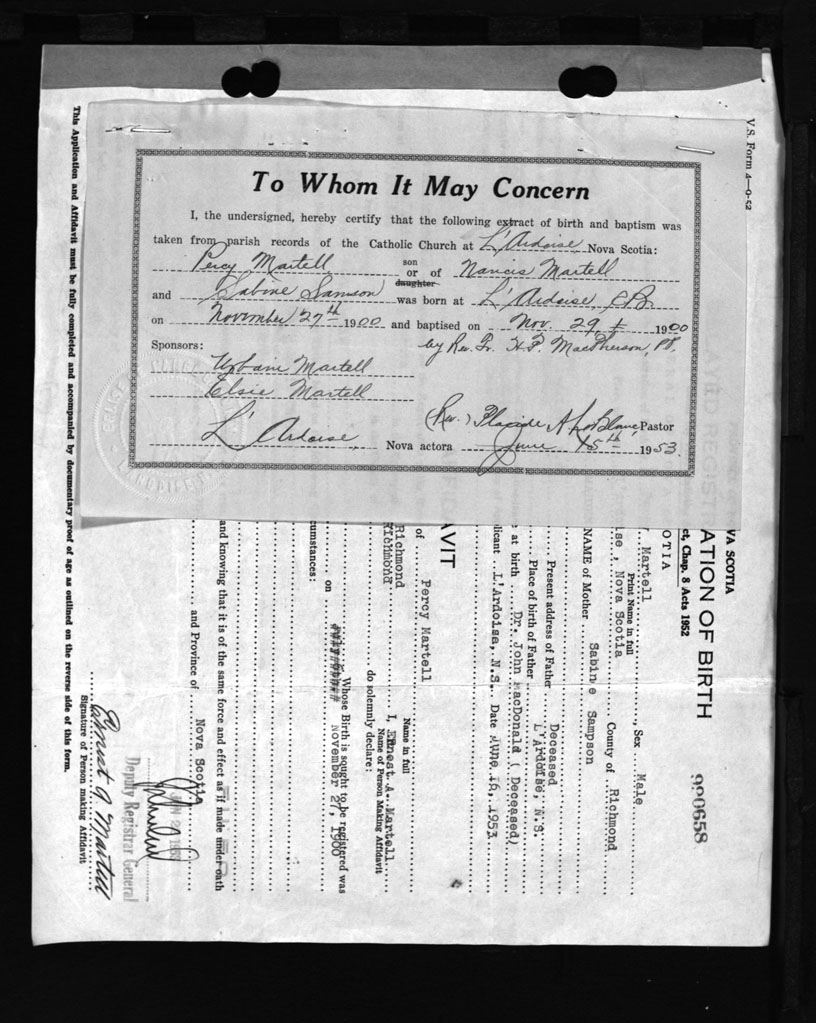 To Whom It May Concern
I, the undersigned, hereby certify that the following extract of birth and baptism was
taken from parish records of the Catholic Church at L'Ardoise, Nova Scotia:
Percy Martell son or daughter of Narcis Martell
and Sabine Samson was born at L'Ardoise, C.B.
on November 27th 1900 and baptised on Nov. 29 1900
Sponsors: by Rev. Fr. H.P. MacPherson, PP.
Urbain Martell
Elsie Martell
(Rev.) Placide A. LeBlanc, Pastor
L'Ardoise, Nova actora June 15th 1953
V.S. Form 4—9-52
990658
VA SCOTIA
ATION OF BIRTH
ct, Chap. 8 Acts 1952
OTIA
Martell, Sex Male
Print Name in full
ise, Nova Scotia County of Richmond
NAME of Mother Sabine Sampson
Present address of Father Deceased
Place of birth of Father L'Ardoise, N.S.
e at birth Dr. John MacDonald ( Deceased)
plicant L'Ardoise, N.S. Date June 16, 1953
AVIT
of Percy Martell
Name in full
Richmond I, Ernest. A. Martell
Name of Person Making Affidavit
Richmond do solemnly declare:
Whose Birth is sought to be registered was
on November 27, 1900
cumstances:
and knowing that it is of the same force and effect as if made under oath
and Province of Nova Scotia
Deputy Registrar General
Ernest A Martell
Signature of Person making Affidavit
This Application and Affidavit must be fully completed and accompanied by documentary proof of age as outlined on the reverse side of this form.